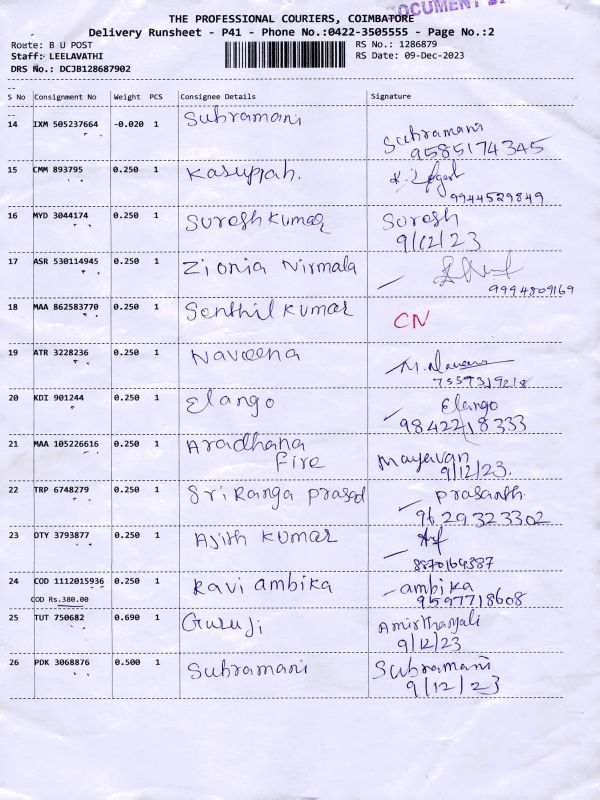 DOCUMENT
THE PROFESSIONAL COURIERS, COIMBATORE
Delivery Runsheet - P41 - Phone No.:0422-3505555 - Page No.:2
Route: B U POST
Staff: LEELAVATHI
DRS No.: DCJB128687902
RS No.: 1286879
RS Date: 09-Dec-2023
S No Consignment No Weight PCS Consignee Details Signature
14 IXM 505237664 -0.020 1 Subramani Subramani
9585174345
15 CMM 893795 0.250 1 Kasuppah.
9944529849
16 MYD 3044174 0.250 1 Suresh Kumar Suresh
9/12/23
17 ASR 530114945 0.250 1 Zionia Nirmala
9994809169
18 MAA 862583770 0.250 1 Senthil Kumar CN
19 ATR 3228236 0.250 1 Naveena
7559319218
20 KDI 901244 0.250 1 Elango Elango
9842218333
21 MAA 105226616 0.250 1 Aradhana
Fire Mayavan
9/12/23.
22 TRP 6748279 0.250 1 Sri Ranga Prasad Prasanth
9629323302
23 OTY 3793877 0.250 1 Ajith Kumar
8870164387
24 COD 1112015936 0.250 1 Ravi ambika ambika
COD Rs.380.00 9597718608
25 TUT 750682 0.690 1 Guruji Amirthanjali
9/12/23
26 PDK 3068876 0.500 1 Subramani Subramani
9/12/23